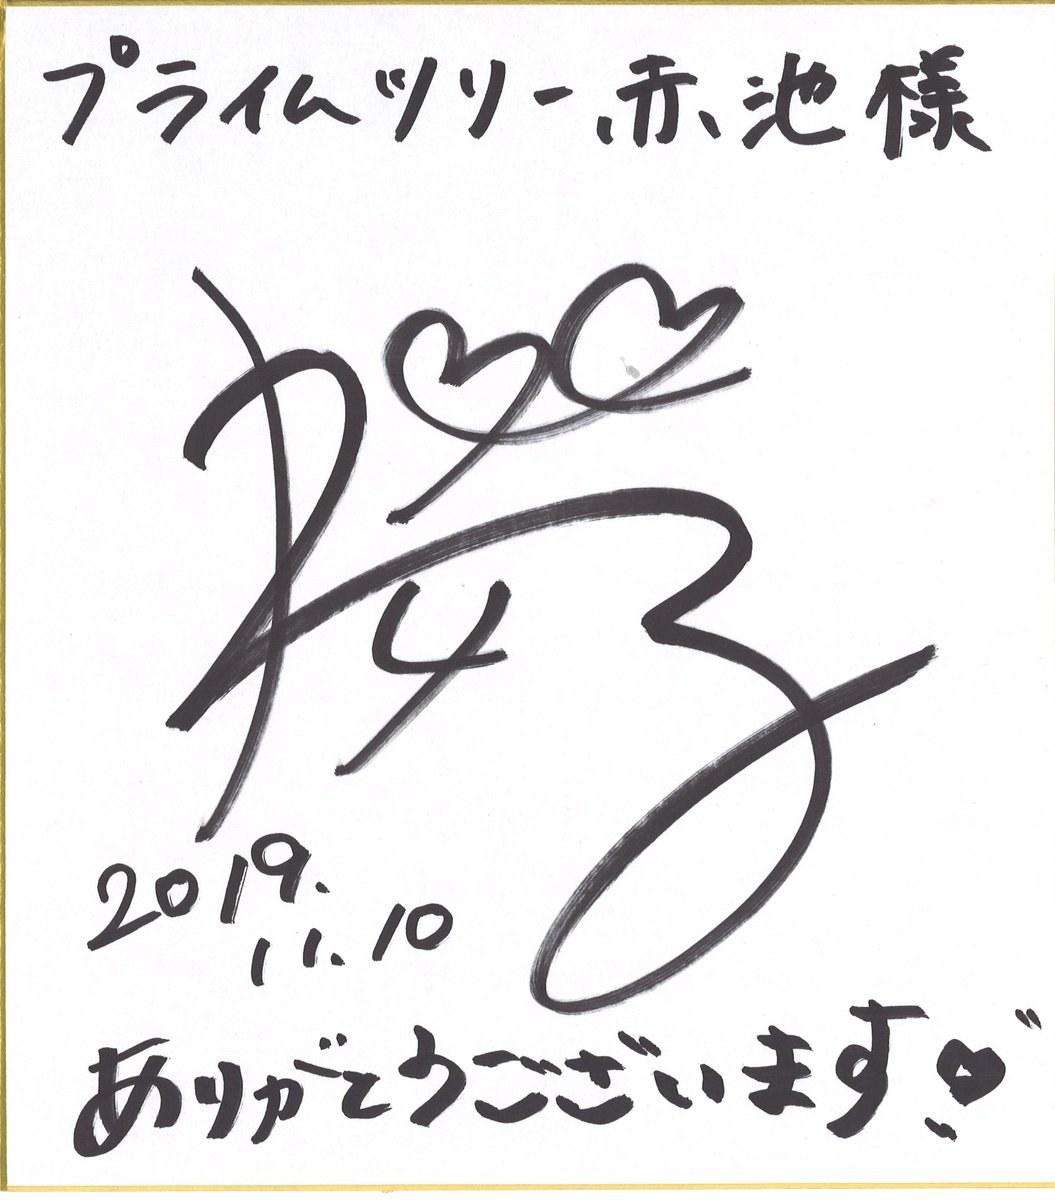 プライムツリー赤池様
櫻子
2019.
11.10
ありがとうございます♥